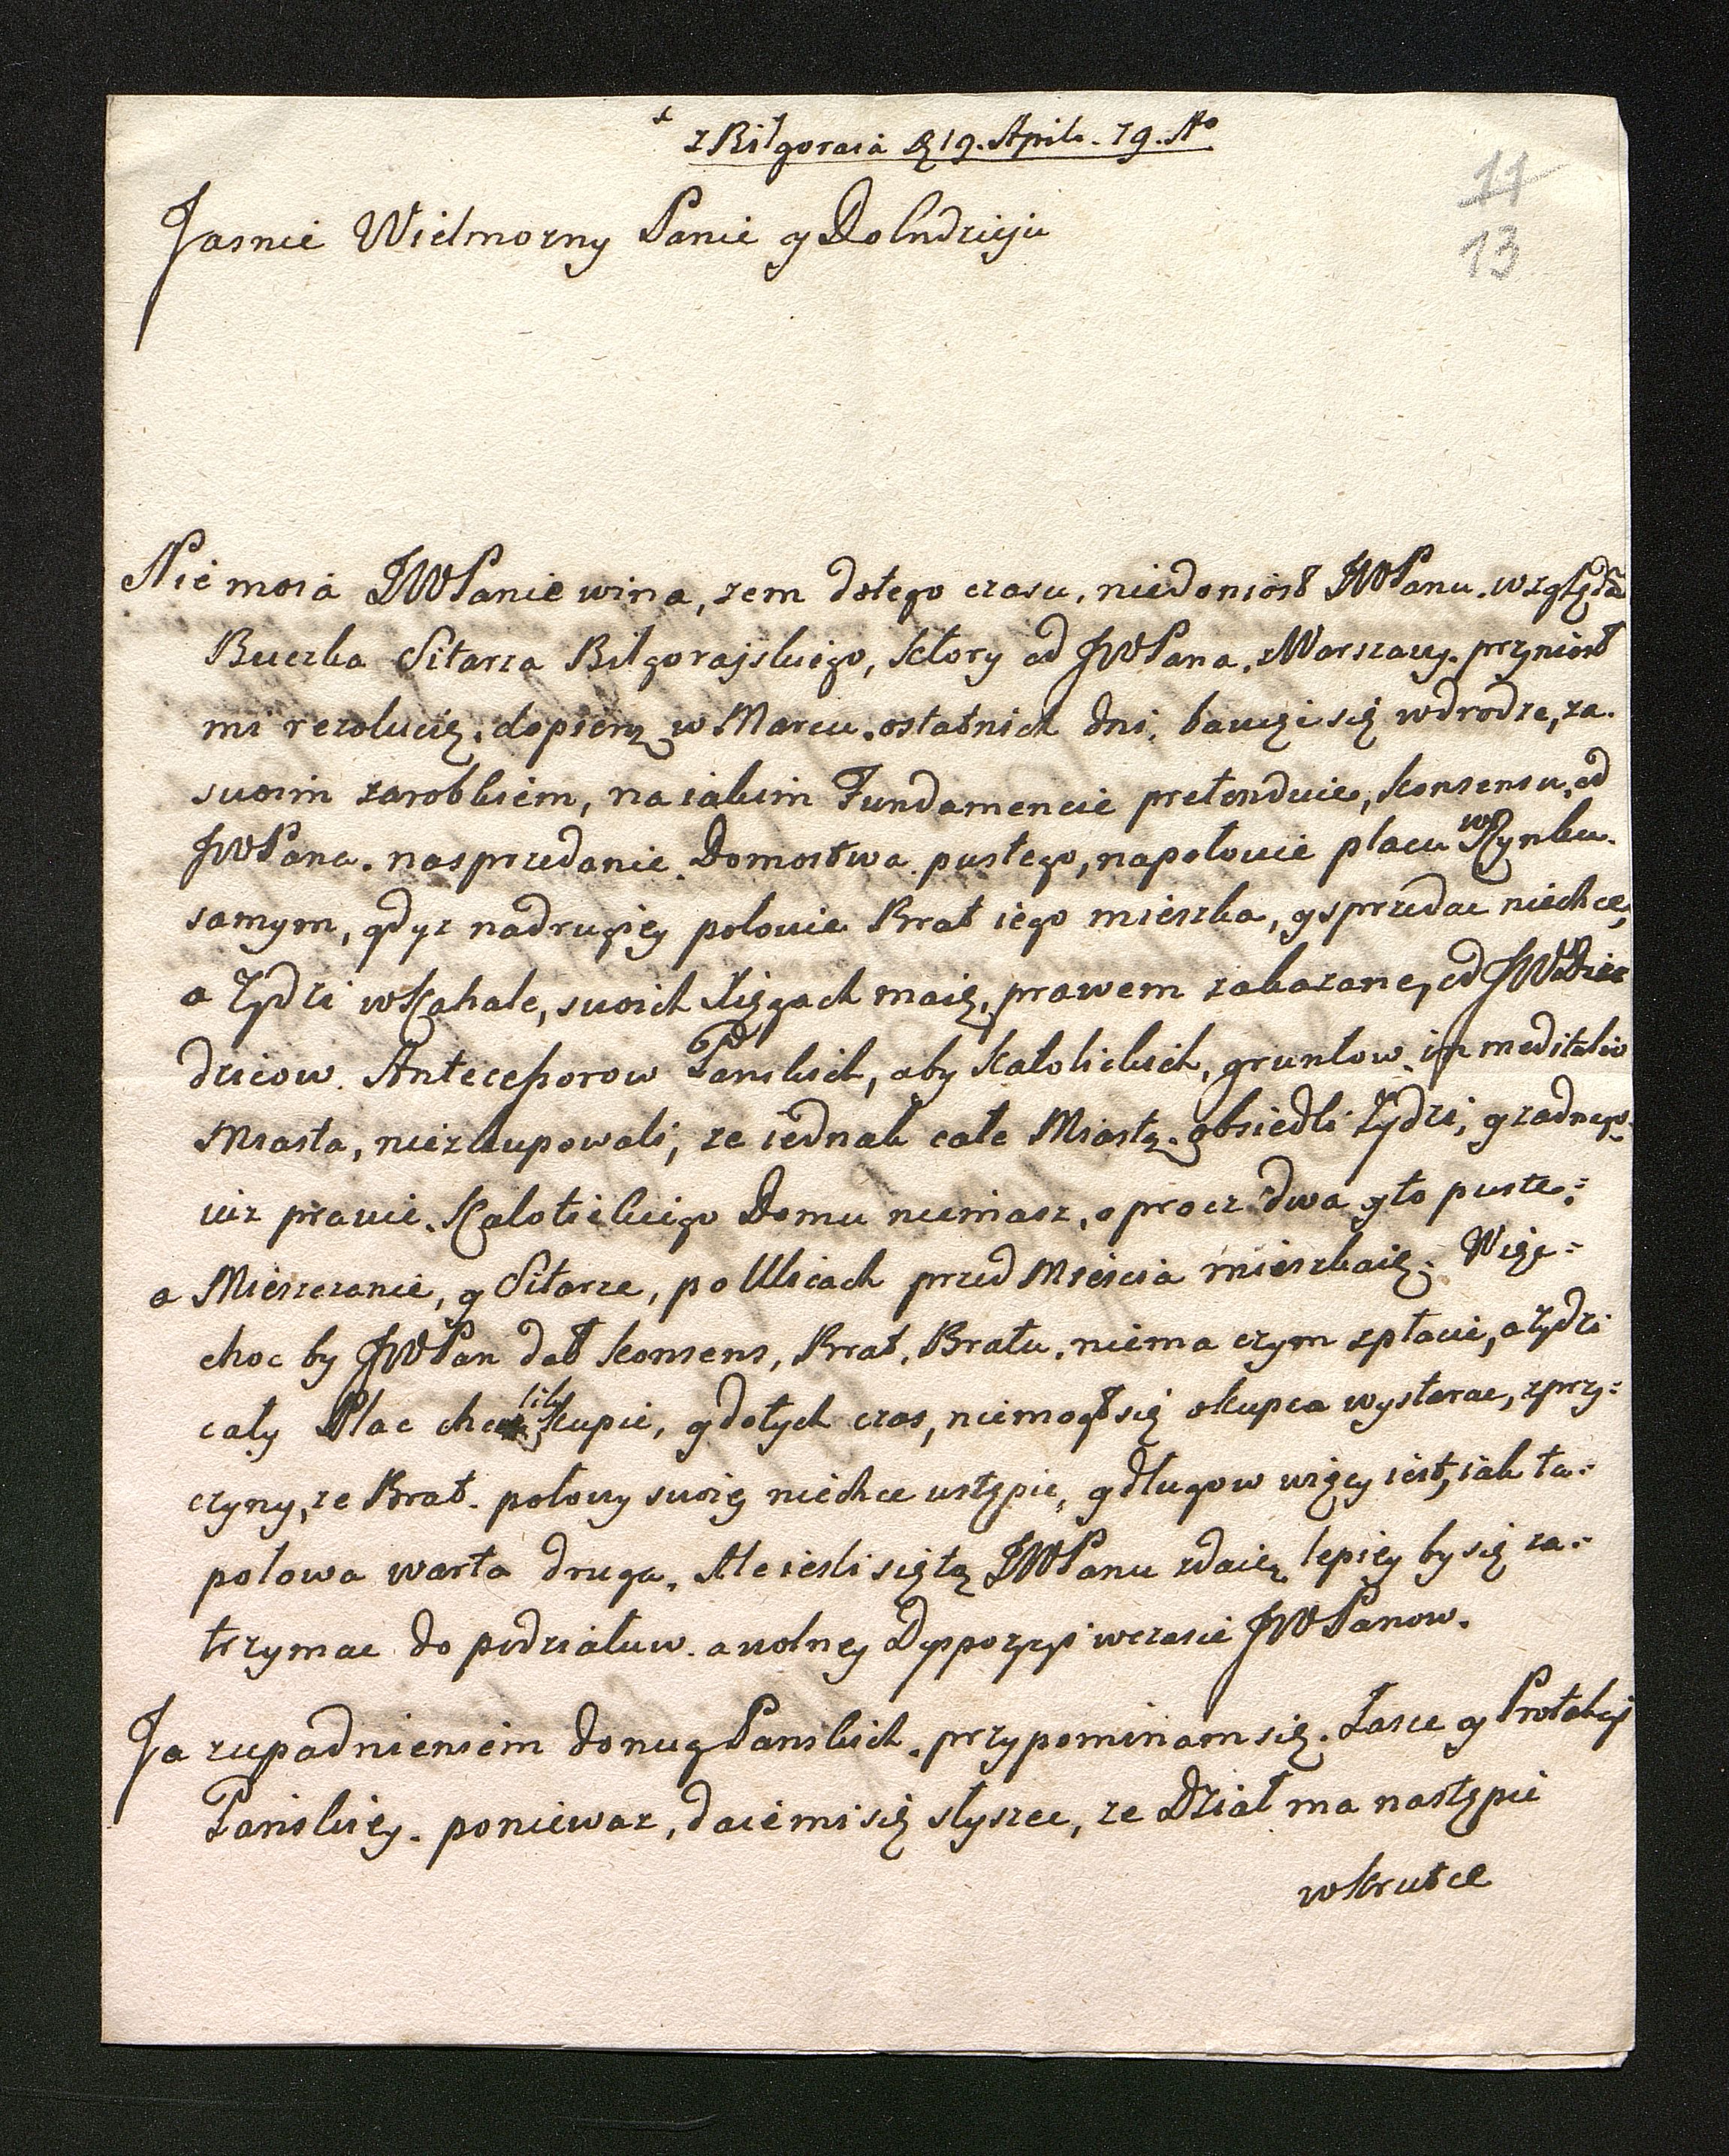 z Biłgoraia D 19. April. 79. Ao
11
13
Jasnie Wielmozny Panie y Dobrdzieju
Nie moia JWPanie wina, zem dotego czasu, niedoniosł JWPanu. względa
Buczka Sitarza Biłgorajskiego, ktory od JWPana. z Warszawy. przyniosł
mi rezolucię. dopiero w Marcu. ostatnich dni. bawięc się wdrodze, za.
swoim zarobkiem, na iakim Fundamencie pretenduie, konsensu. od
JWPana. nasprzedanie. Domostwa pustego, napołowie placu w Rynku.
samym, gdyz nadrugiey połowie Brat iego mieszka, y sprzedac niechce,
a Zydzi wKahale, swoich Xięgach maię, prawem zakazane, od JWDzie
dzicow. Antecessorow Panskich, aby Katolickich, gruntow. in meditullio
Miasta, niezkupowali, ze iednak całe Miasto. obsiedli Zydzi, y zadnego.
iuz prawie. Katolickiego Domu niemasz, oprocz dwa y to puste.:
a Mieszczanie, y Sitarze, po Ulicach przed Miescia mieszkaię. Więc=
choc by JWPan dał konsens, Brat, Bratu. niema czym zpłacic, a Zydzi
cały Plac chcieliby kupic, y dotych czas, niemogł się okupca wystarac, zprzy=
czyny, ze Brat. połowy swoię niechce ustępic, y długow więcy iest, iak ta=
połowa warta druga. Ale iesli się to JWPanu zdaię lepiey by się za=
trzymac do podziałuw. a wolney Dyspozycyi wczasie JWPanow.
Ja zupadnieniem donug Panskich. przypominam się. Łasce y Protekcyi
Panskiey. poniewaz, daie mi się słyszec, ze Dział ma nastąpic
wkrutce